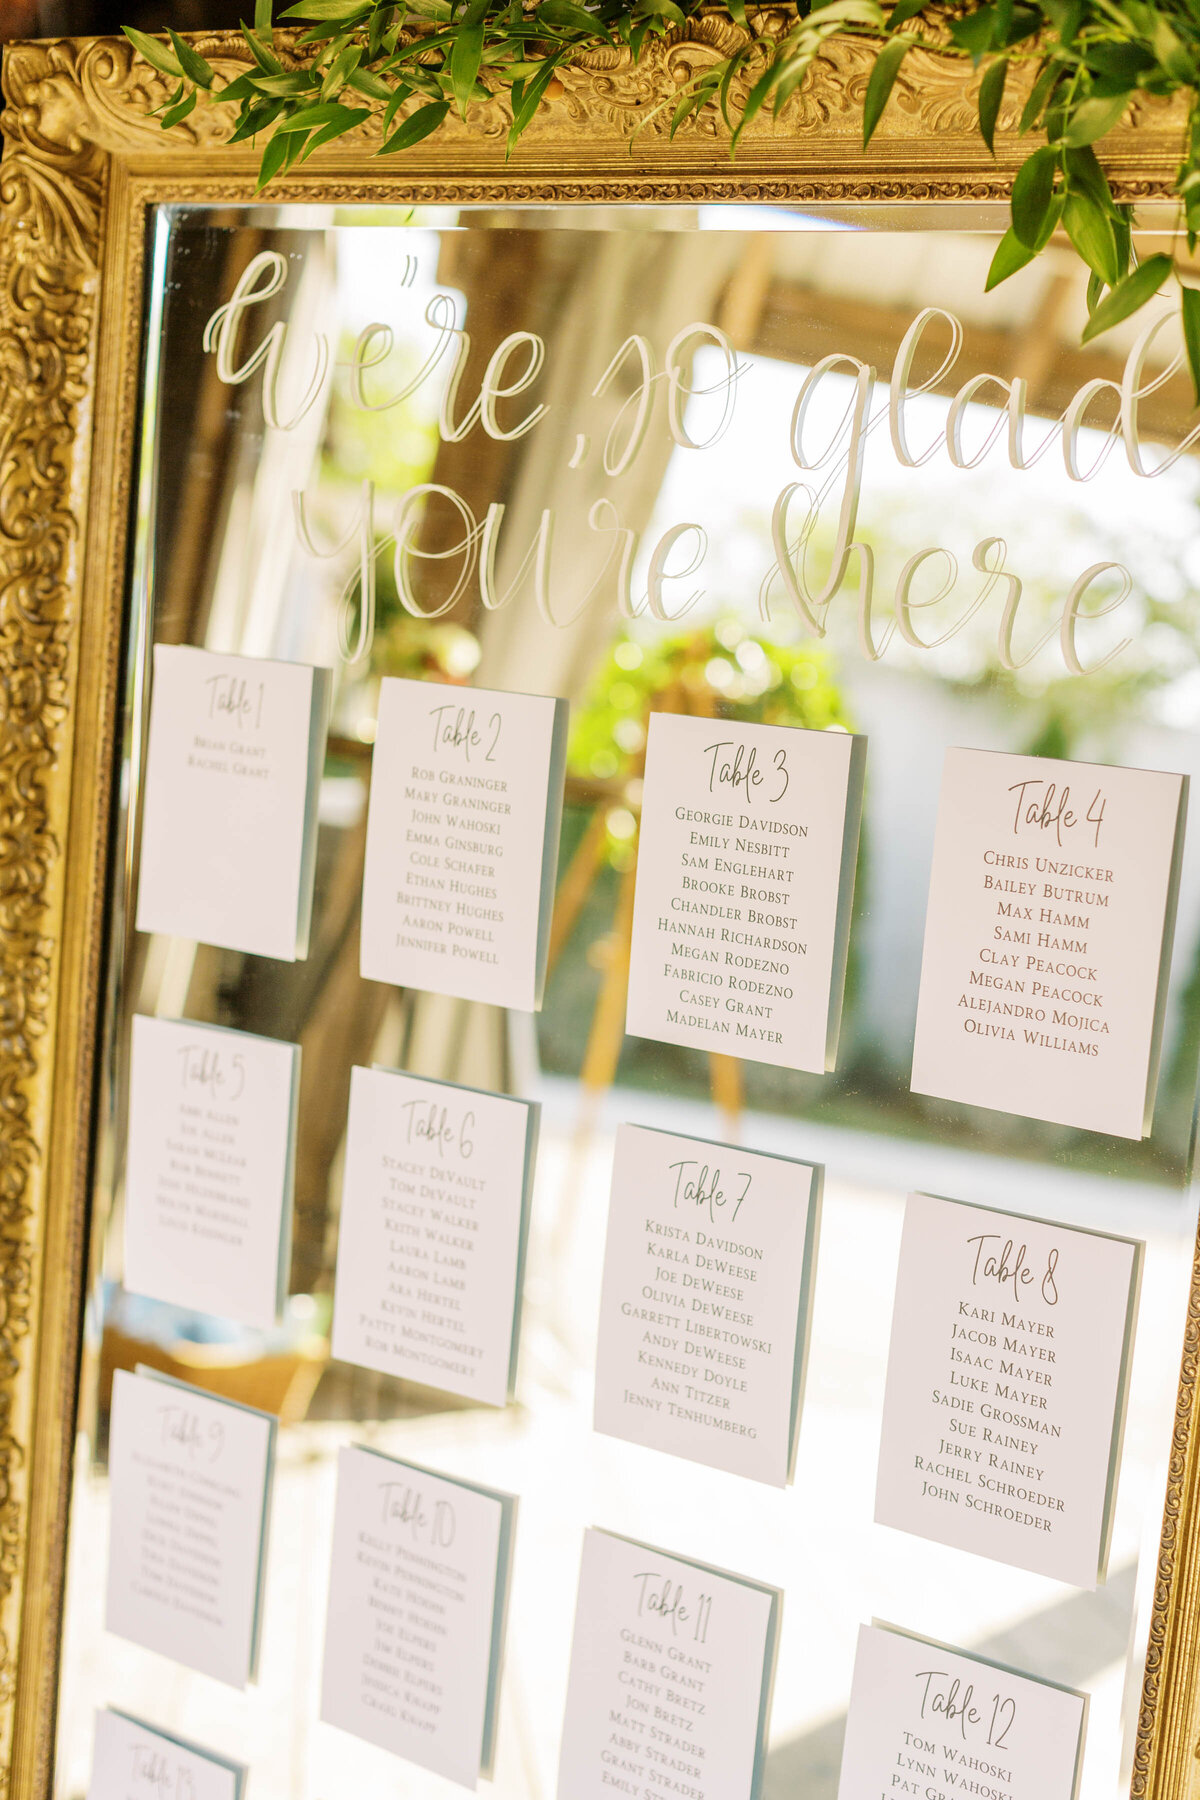 We're so glad
you're here
Table 1
Brian Grant
Rachel Grant
Table 2
Rob Graninger
Mary Graninger
John Wahoski
Emma Ginsburg
Cole Schafer
Ethan Hughes
Brittney Hughes
Aaron Powell
Jennifer Powell
Table 3
Georgie Davidson
Emily Nesbitt
Sam Englehart
Brooke Brobst
Chandler Brobst
Hannah Richardson
Megan Rodezno
Fabricio Rodezno
Casey Grant
Madelan Mayer
Table 4
Chris Unzicker
Bailey Butrum
Max Hamm
Sami Hamm
Clay Peacock
Megan Peacock
Alejandro Mojica
Olivia Williams
Table 5
Allen
Joe Allen
Sarah McLear
Rob Bennett
Josh Hildebrand
Marshall
Table 6
Stacey DeVault
Tom DeVault
Stacey Walker
Keith Walker
Laura Lamb
Aaron Lamb
Ara Hertel
Kevin Hertel
Patty Montgomery
Rob Montgomery
Table 7
Krista Davidson
Karla DeWeese
Joe DeWeese
Olivia DeWeese
Garrett Libertowski
Andy DeWeese
Kennedy Doyle
Ann Titzer
Jenny Tenhumberg
Table 8
Kari Mayer
Jacob Mayer
Isaac Mayer
Luke Mayer
Sadie Grossman
Sue Rainey
Jerry Rainey
Rachel Schroeder
John Schroeder
Table 9
Davidson
Davidson
Tom Davidson
Davidson
Table 10
Kelly Pennington
Kevin Pennington
Kate
Joe Elpers
Jim Elpers
Debbie Elpers
Jessica Knapp
Craig Knapp
Table 11
Glenn Grant
Barb Grant
Cathy Bretz
Jon Bretz
Matt Strader
Abby Strader
Grant Strader
Emily
Table 12
Tom Wahoski
Lynn Wahoski
Pat
Table 13